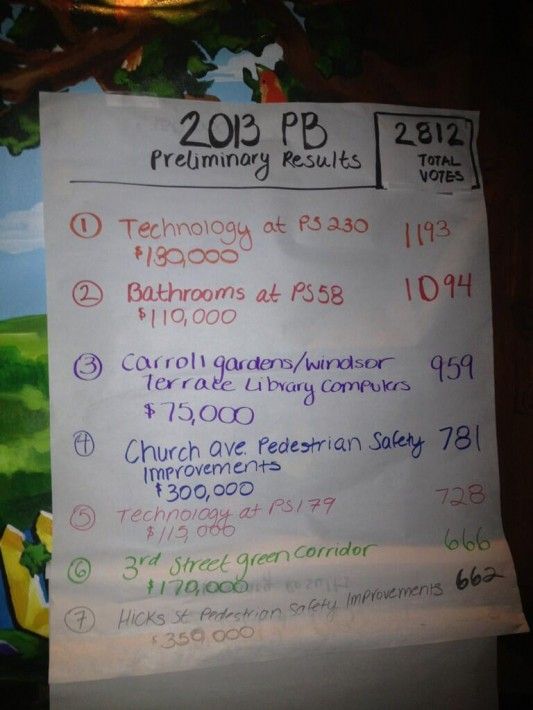 2013 PB
Preliminary Results
2812
TOTAL
VOTES
① Technology at PS 230 1193
$180,000
② Bathrooms at PS58 1094
$110,000
③ Carroll gardens/windsor 959
Terrace Library Computers
$75,000
④ Church ave. Pedestrian Safety 781
Improvements
$300,000
⑤ Technology at PS179 728
$115,000
⑥ 3rd Street green Corridor 666
$170,000
⑦ Hicks St. Pedestrian Safety Improvements 662
$350,000